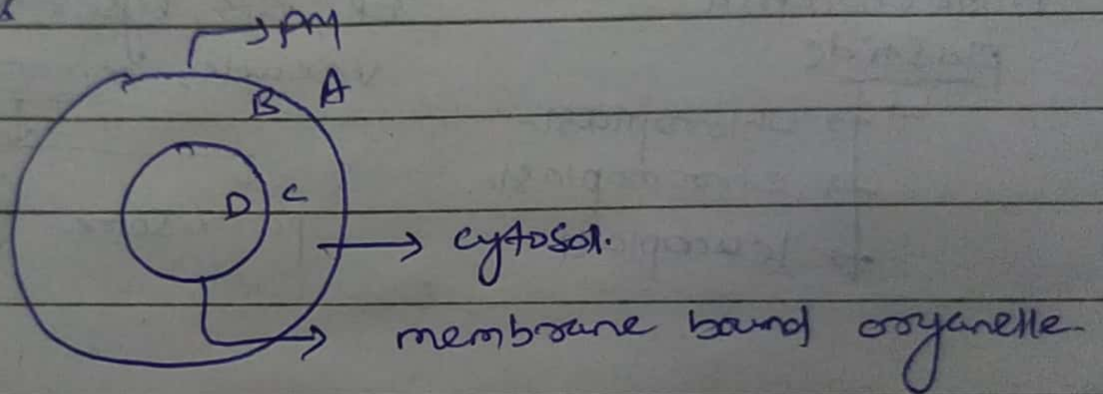 PM
B A
D C
cytosol.
membrane bound organelle